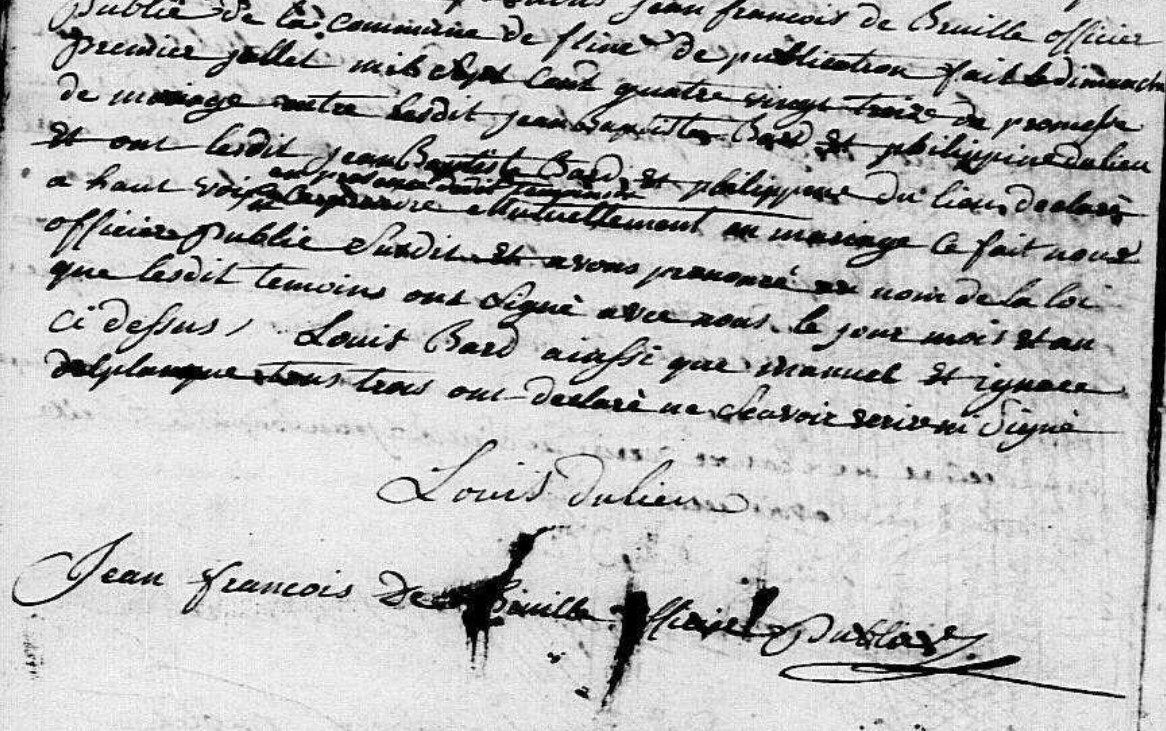 jean françois de Bruille officier
publie de la commune de fline de publication fait le dimanche
premier jullet mil sept cent quatre vingt treize de promesse
de mariage entre lesdit jean Baptiste Bard et philippine dulieu
et ont lesdit jean Baptiste Bard et philippine du lieu declarè
en presence desdit temoins
a haut voix se prendre mutuellement en mariage ce fait nous
officier publie Susdit et avons prononcè au nom de la loi
que lesdit temoins ont Signè avec nous le jour mois et an
ci dessus / Louis Bard ainssi que manuel et ignace
delplanque tous trois ont declarè ne Scavoir ecrire ni Signè
Louis Dulieu
Jean françois De Bruille officier Publie